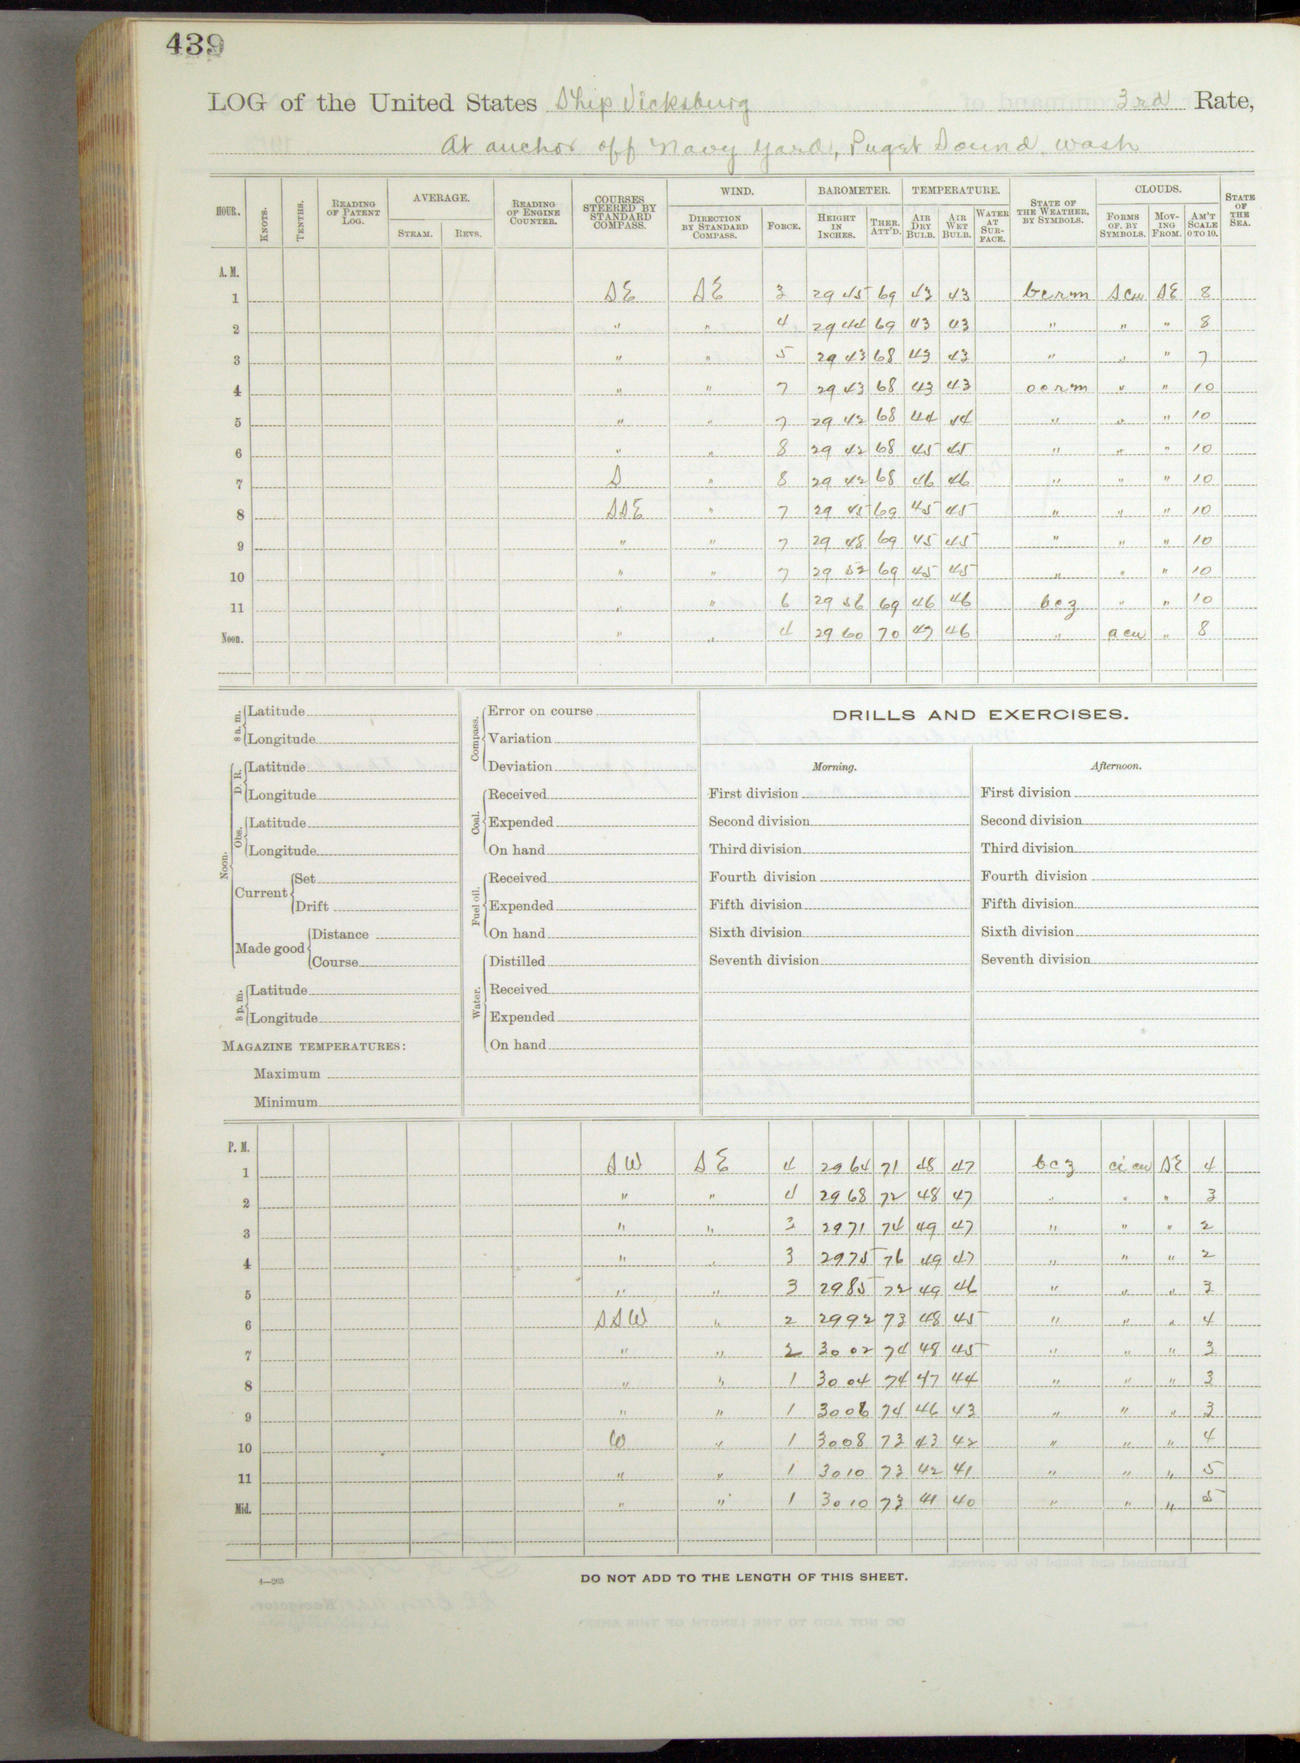 439
LOG of the United States Ship Vicksburg 3rd Rate,
At anchor off Navy Yard, Puget Sound, Wash
HOUR. KNOTS. TENTHS. READING OF PATENT LOG. AVERAGE. STEAM. REVS. READING OF ENGINE COUNTER. COURSES STEERED BY STANDARD COMPASS. WIND. DIRECTION BY STANDARD COMPASS. FORCE. BAROMETER. HEIGHT IN INCHES. THER. ATT'D. TEMPERATURE. AIR DRY BULB. AIR WET BULB. WATER AT SURFACE. STATE OF THE WEATHER, BY SYMBOLS. CLOUDS. FORMS OF, BY SYMBOLS. MOVING FROM. AM'T SCALE 0 TO 10. STATE OF THE SEA.
A. M.
1 SE SE 3 29 45 69 43 43 bcrm S cu SE 8
2 " " 4 29 44 69 43 43 " " " 8
3 " " 5 29 43 68 43 43 " " " 7
4 " " 7 29 43 68 43 43 oorm " " 10
5 " " 7 29 42 68 44 44 " " " 10
6 " " 8 29 42 68 45 45 " " " 10
7 S " 8 29 42 68 46 46 " " " 10
8 SSE " 7 29 45 69 45 45 " " " 10
9 " " 7 29 48 69 45 45 " " " 10
10 " " 7 29 52 69 45 45 " " " 10
11 " " 6 29 56 69 46 46 bcz " " 10
Noon. " " 4 29 60 70 47 46 " a cu " 8
8 a. m. Latitude
Longitude
Noon. D. R. Latitude
Longitude
Obs. Latitude
Longitude
Current Set
Drift
Made good Distance
Course
8 p. m. Latitude
Longitude
MAGAZINE TEMPERATURES:
Maximum
Minimum
Compass. Error on course
Variation
Deviation
Coal. Received
Expended
On hand
Fuel oil. Received
Expended
On hand
Water. Distilled
Received
Expended
On hand
DRILLS AND EXERCISES.
Morning. Afternoon.
First division First division
Second division Second division
Third division Third division
Fourth division Fourth division
Fifth division Fifth division
Sixth division Sixth division
Seventh division Seventh division
P. M.
1 SW SE 4 29 64 71 48 47 bcz ci cu SE 4
2 " " 4 29 68 72 48 47 " " " 3
3 " " 3 29 71 74 49 47 " " " 2
4 " " 3 29 75 76 49 47 " " " 2
5 " " 3 29 85 72 49 46 " " " 3
6 SSW " 2 29 92 73 48 45 " " " 4
7 " " 2 30 02 74 48 45 " " " 3
8 " " 1 30 04 74 47 44 " " " 3
9 " " 1 30 06 74 46 43 " " " 3
10 W " 1 30 08 73 43 42 " " " 4
11 " " 1 30 10 73 42 41 " " " 5
Mid. " " 1 30 10 73 41 40 " " " 5
DO NOT ADD TO THE LENGTH OF THIS SHEET.